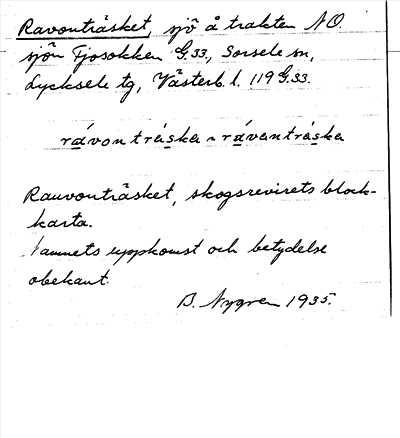 Ravonträsket, sjö å trakten NO.
sjön Fjosokken G.33., Sorsele sn,
Lycksele tg, Västerb. l. 119 G.33.
rávonträska ~ rávanträska
Rauvonträsket, skogsrevirets block-
karta.
Namnets uppkomst och betydelse
obekant.
B. Nygren 1935.